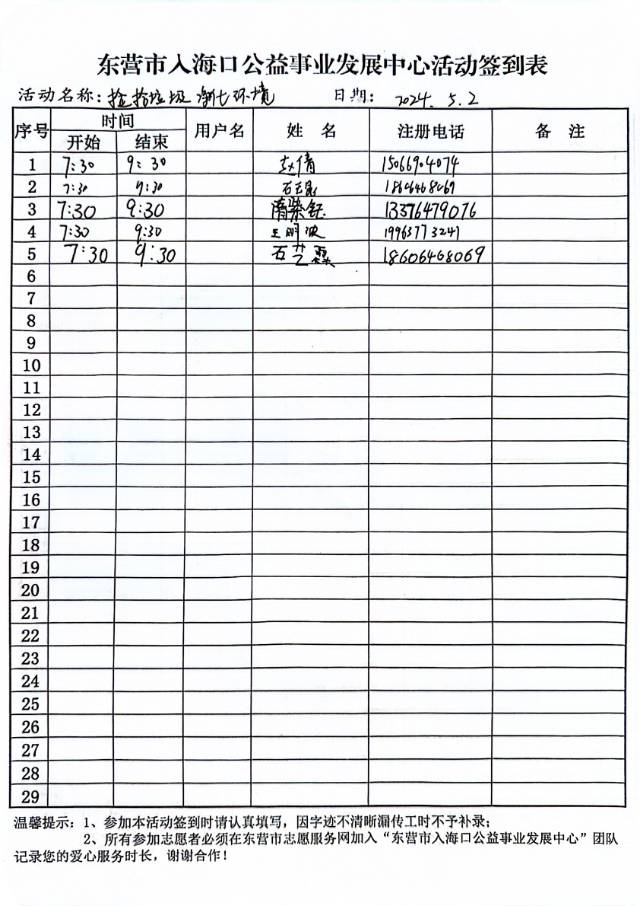 东营市入海口公益事业发展中心活动签到表
活动名称：捡拾垃圾 净化环境 日期： 2024. 5. 2
序号 时间 用户名 姓 名 注册电话 备 注
开始 结束
1 7:30 9:30 赵倩 15066904074
2 7:30 9:30 18606468069
3 7:30 9:30 隋紫钰 13376479076
4 7:30 9:30 王明波 19963773241
5 7:30 9:30 石艺霖 18606468069
6
7
8
9
10
11
12
13
14
15
16
17
18
19
20
21
22
23
24
25
26
27
28
29
温馨提示：1、参加本活动签到时请认真填写，因字迹不清晰漏传工时不予补录；
2、所有参加志愿者必须在东营市志愿服务网加入“东营市入海口公益事业发展中心”团队
记录您的爱心服务时长，谢谢合作！